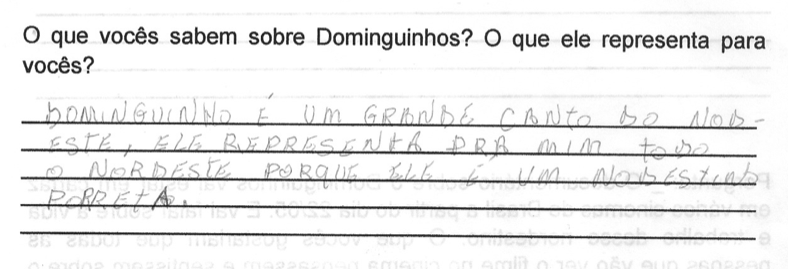 O que vocês sabem sobre Dominguinhos? O que ele representa para
vocês?
DOMINGUINHO É UM GRANDE CANTO DO NOD-
ESTE, ELE REPRESENTA PRA MIM todo
O NORDESTE PORQUE ELE É UM NODESTINO
PORRETA.